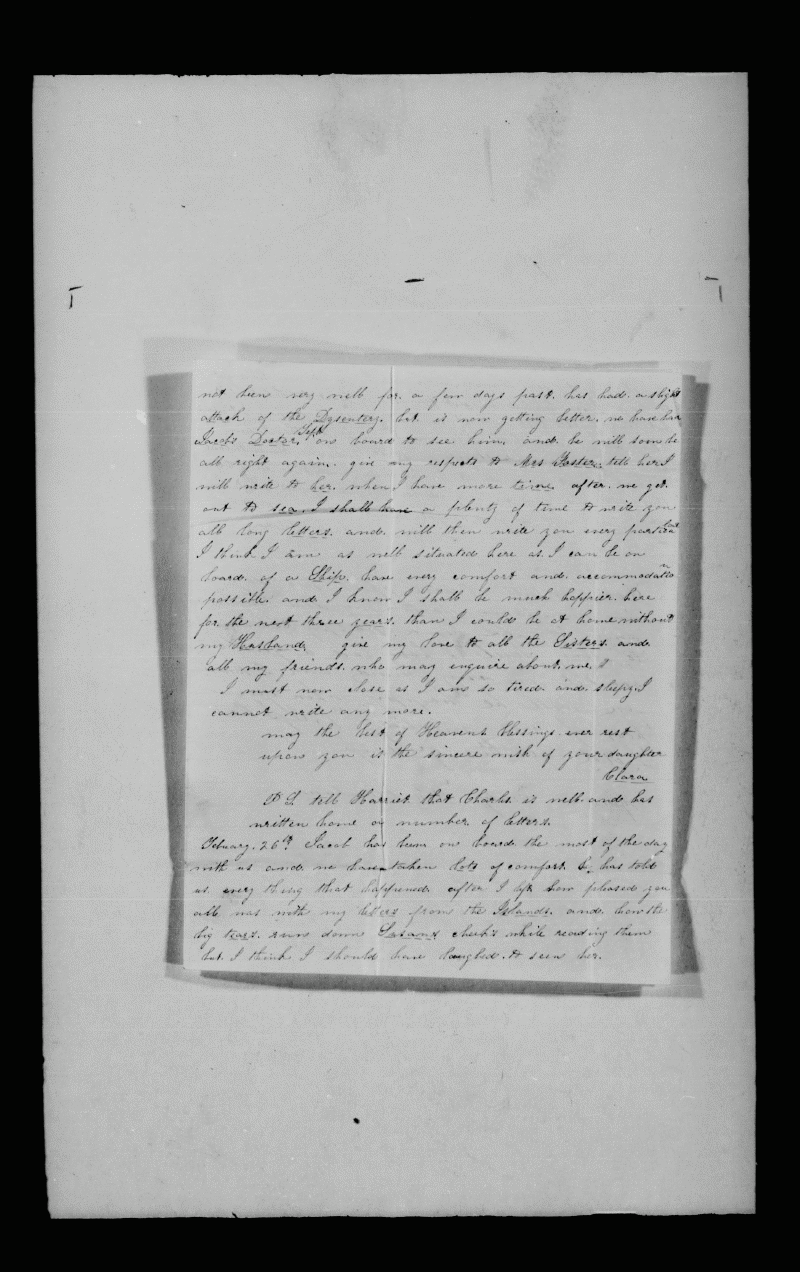 not been very well for a few days past. has had a slight
attack of the Dysentery. but is now getting better. we have had
Jacobs Doctor, on board to see him, and he will soon be
all right again. give my respects to Mrs Foster, tell her I
will write to her. when I have more time. after we get
out to sea. I shall have a plenty of time to write you
all long letters. and will then write you every particular
I think I am as well situated here as I can be on
board of a Ship. have every comfort and accommodation
possible. and I know I shall be much happier here
for the next three years. than I could be at home without
my Husband. give my love to all the Sisters and
all my friends. who may enquire about me.
I must now close as I am so tired and sleepy. I
cannot write any more.
may the best of Heavens blessings ever rest
upon you is the sincere wish of your daughter
Clara
P S. tell Harriet that Charles is well and has
written home a number of letters.
Febuary. 26th Jacob has been on board the most of the day
with us and we have taken lots of comfort. he has told
us every thing that happened after I left how pleased you
all was with my letters from the Islands. and how the
big tears. run down Susans cheeks while reading them
but I think I should have laughed. to seen her.